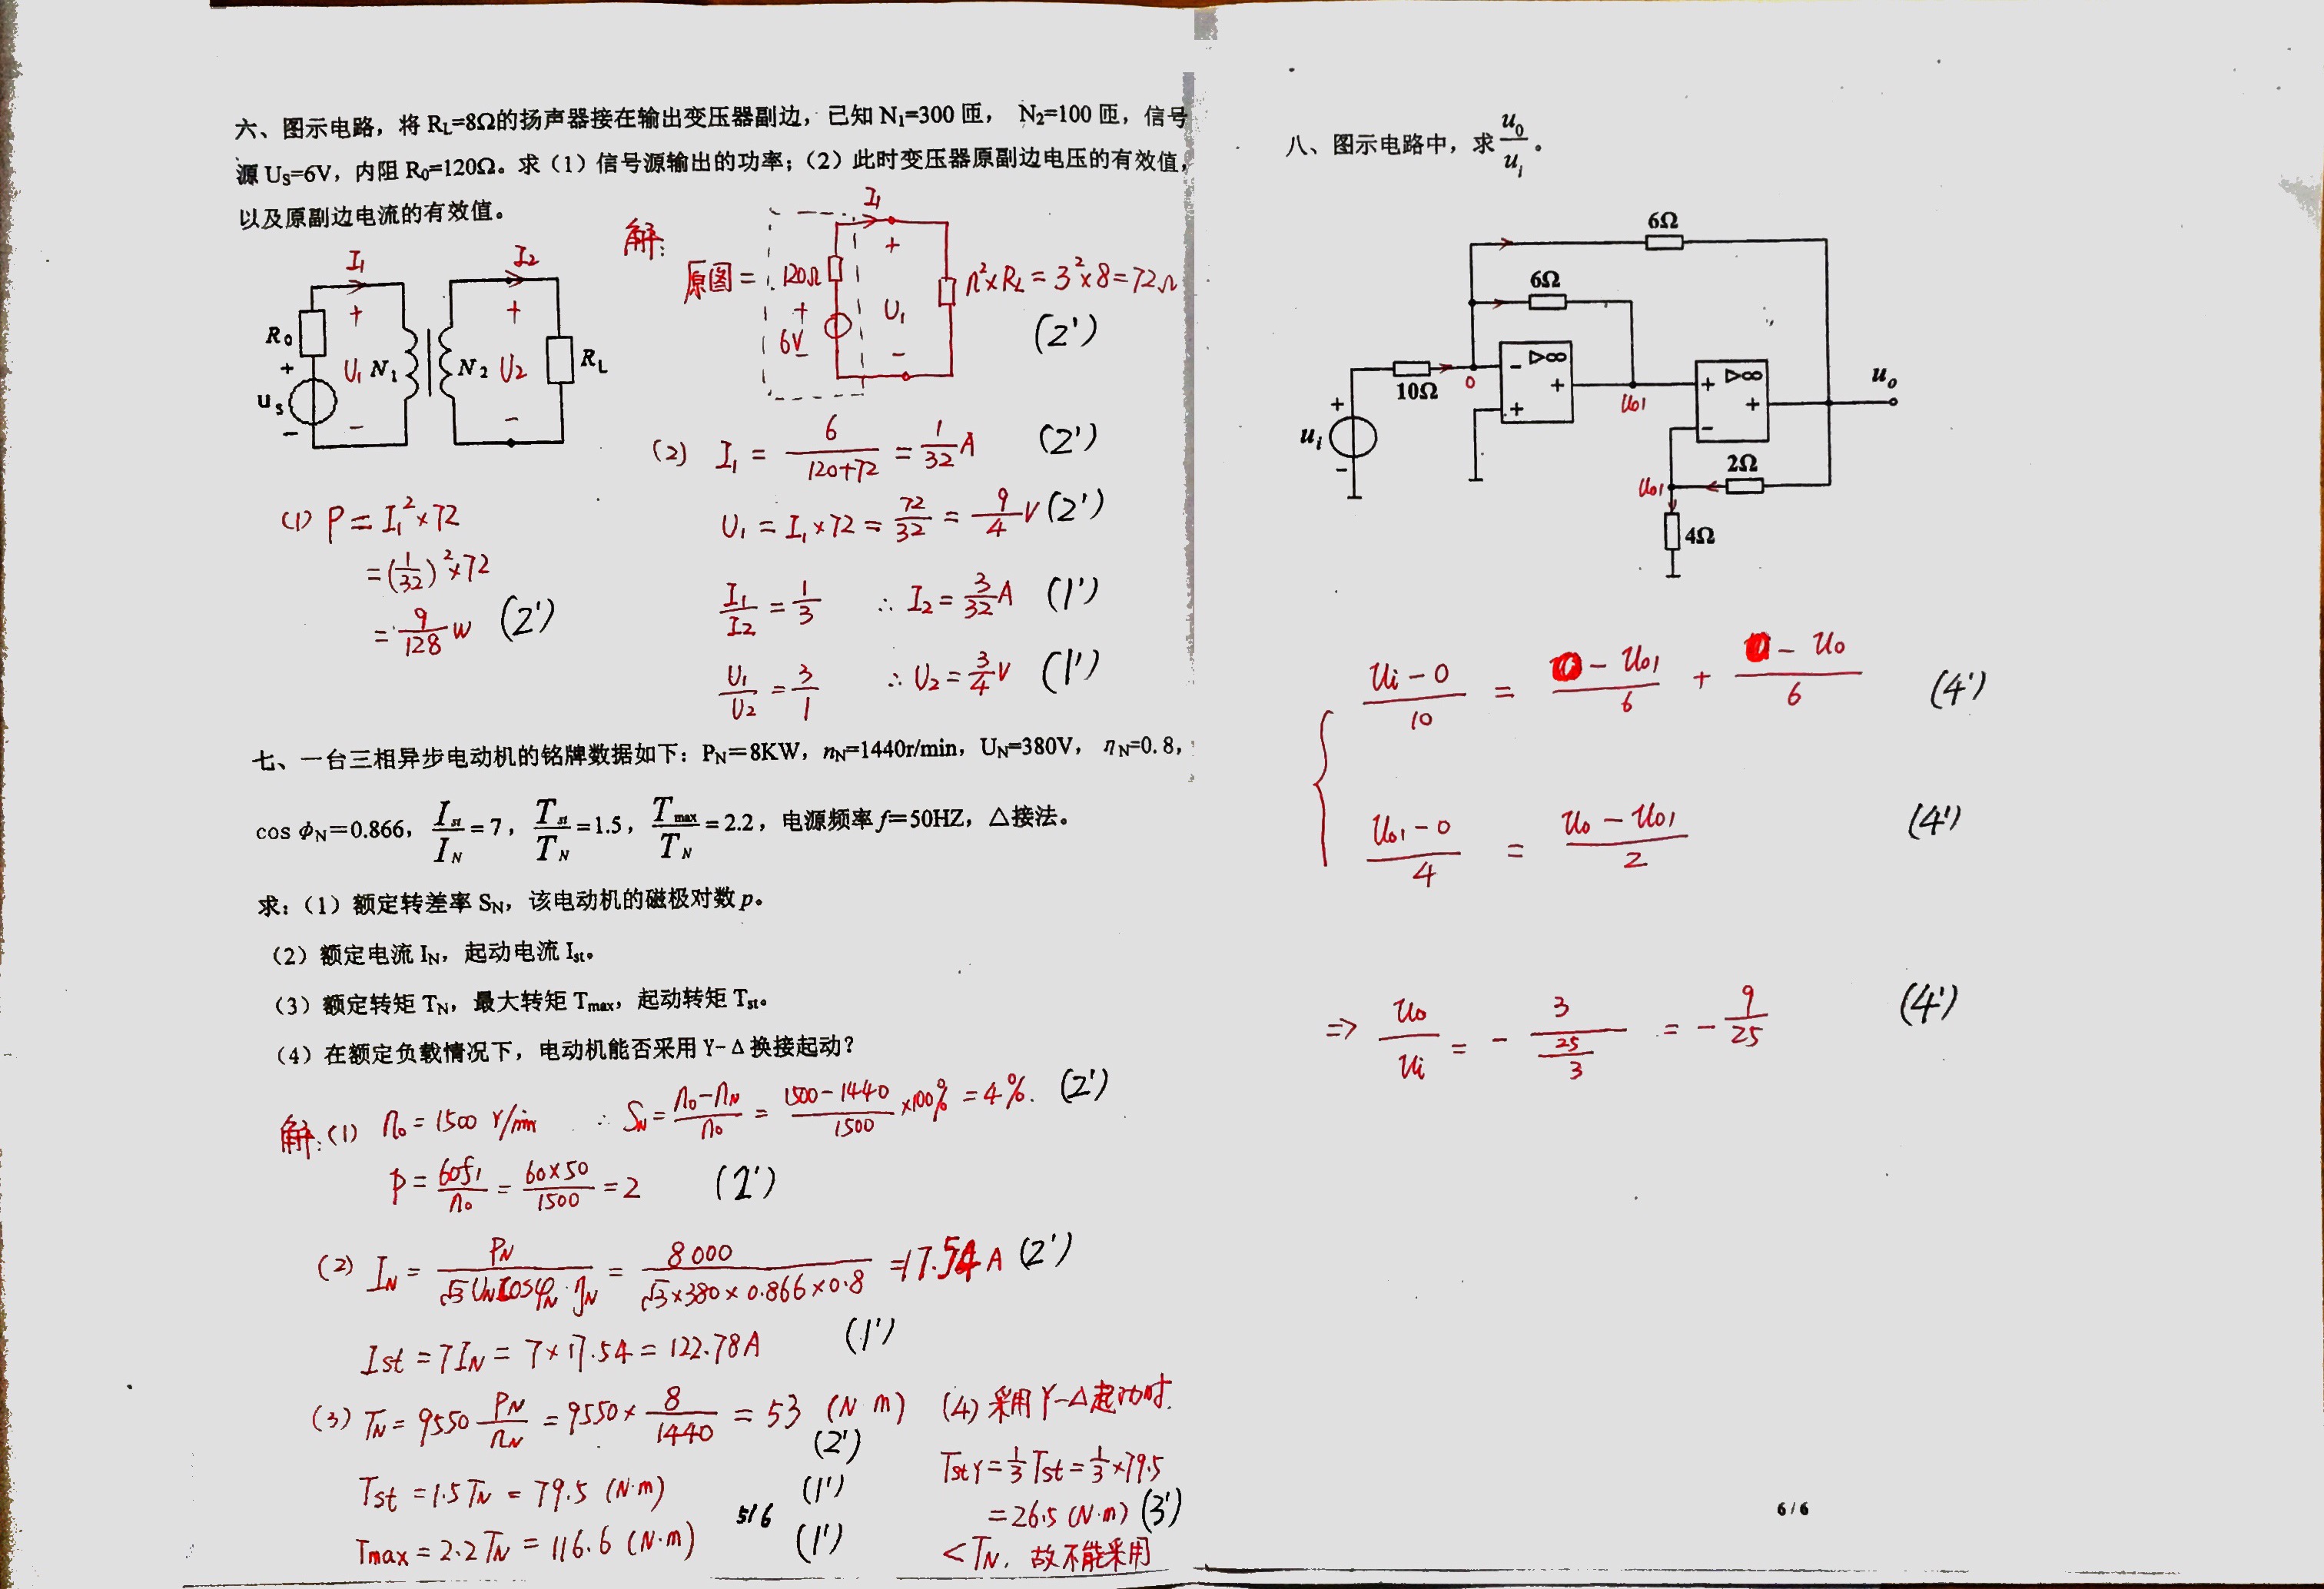 六、图示电路，将 RL=8Ω的扬声器接在输出变压器副边，已知 N1=300 匝， N2=100 匝，信号
源 US=6V，内阻 R0=120Ω。求（1）信号源输出的功率；（2）此时变压器原副边电压的有效值，
以及原副边电流的有效值。
I1 I2
R0 + U1 N1 N2 + U2 RL
+ us - - -
解：
原图 = 120Ω + 6V - I1 + U1 - n²×RL = 3²×8 = 72Ω
(2')
(1) P = I1²×72
= (1/32)²×72
= 9/128 W (2')
(2) I1 = 6/(120+72) = 1/32 A (2')
U1 = I1×72 = 72/32 = 9/4 V (2')
I1/I2 = 1/3 ∴ I2 = 3/32 A (1')
U1/U2 = 3/1 ∴ U2 = 3/4 V (1')
七、一台三相异步电动机的铭牌数据如下：PN＝8KW，nN=1440r/min，UN=380V， ηN=0.8，
cos ϕN＝0.866，Ist/IN = 7，Tst/TN = 1.5，Tmax/TN = 2.2，电源频率 f＝50HZ，△接法。
求：（1）额定转差率 SN，该电动机的磁极对数 p。
（2）额定电流 IN，起动电流 Ist。
（3）额定转矩 TN，最大转矩 Tmax，起动转矩 Tst。
（4）在额定负载情况下，电动机能否采用 Y-Δ 换接起动？
解：(1) n0 = 1500 r/min ∴ SN = (n0-nN)/n0 = (1500-1440)/1500 ×100% = 4%. (2')
p = 60f1/n0 = 60×50/1500 = 2 (2')
(2) IN = PN/(√3 UN cosφN·ηN) = 8000/(√3×380×0.866×0.8) = 17.54 A (2')
Ist = 7IN = 7×17.54 = 122.78A (1')
(3) TN = 9550 PN/nN = 9550× 8/1440 = 53 (N·m)
(2')
Tst = 1.5TN = 79.5 (N·m) (1')
Tmax = 2.2TN = 116.6 (N·m) (1')
(4) 采用 Y-Δ起动时.
TstY = 1/3 Tst = 1/3×79.5
= 26.5 (N·m) (3')
< TN. 故不能采用
5/6
八、图示电路中，求 u0/ui 。
6Ω
6Ω
10Ω 0 - ▷∞ + + u01 + ▷∞ + - uo
+ ui -
2Ω
u01
4Ω
(ui-0)/10 = (0-u01)/6 + (0-u0)/6 (4')
(u01-0)/4 = (u0-u01)/2 (4')
=> u0/ui = - 3/(25/3) = - 9/25 (4')
6/6